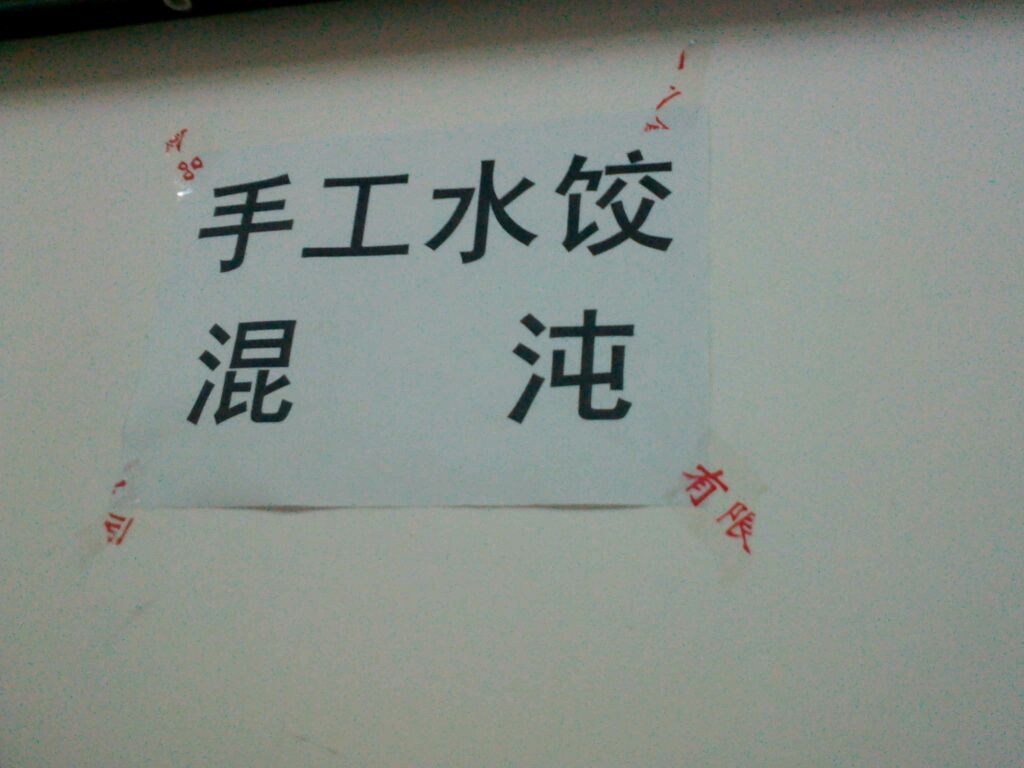 手工水饺
混 沌
有限